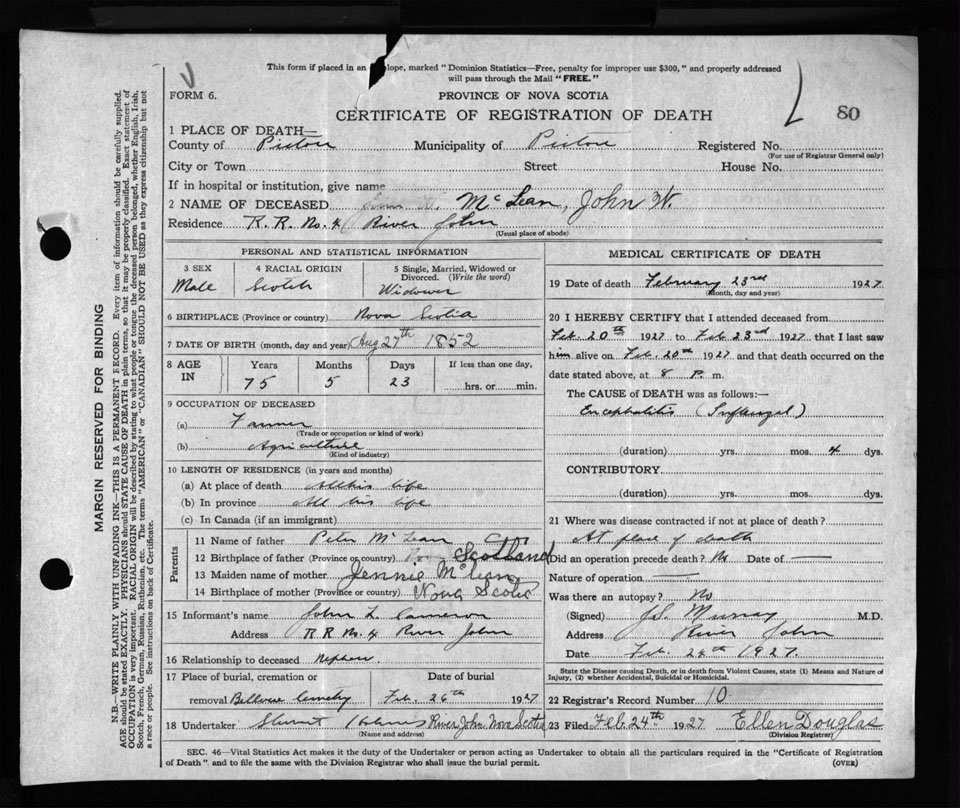 This form if placed in an lope, marked "Dominion Statistics—Free, penalty for improper use $300," and properly addressed
will pass through the Mail "FREE."
FORM 6.
PROVINCE OF NOVA SCOTIA
80
CERTIFICATE OF REGISTRATION OF DEATH
1 PLACE OF DEATH—
County of Pictou Municipality of Pictou Registered No.
(For use of Registrar General only)
City or Town Street House No.
If in hospital or institution, give name
2 NAME OF DECEASED McLean, John W.
Residence R. R. No. 4 River John
(Usual place of abode)
PERSONAL AND STATISTICAL INFORMATION
3 SEX 4 RACIAL ORIGIN 5 Single, Married, Widowed or
Divorced. (Write the word)
Male Scotch Widower
6 BIRTHPLACE (Province or country) Nova Scotia
7 DATE OF BIRTH (month, day and year) Aug 27th 1852
8 AGE IN Years Months Days If less than one day,
75 5 23 hrs. or min.
9 OCCUPATION OF DECEASED
(a) Farmer
(Trade or occupation or kind of work)
(b) Agriculture
(Kind of industry)
10 LENGTH OF RESIDENCE (in years and months)
(a) At place of death All his life
(b) In province All his life
(c) In Canada (if an immigrant)
Parents
11 Name of father Peter McLean
12 Birthplace of father (Province or country) Nova Scotland
13 Maiden name of mother Jennie McLean
14 Birthplace of mother (Province or country) Nova Scotia
15 Informant's name John L. Cameron
Address R R No. 4 River John
16 Relationship to deceased nephew
17 Place of burial, cremation or Date of burial
removal Bellvue Cemetery Feb. 26th 1927
18 Undertaker River John Nova Scotia
(Name and address)
MEDICAL CERTIFICATE OF DEATH
19 Date of death February 23rd 1927
(Month, day and year)
20 I HEREBY CERTIFY that I attended deceased from
Feb. 20th 1927 to Feb 23rd 1927 that I last saw
him alive on Feb. 20th 1927 and that death occurred on the
date stated above, at 8 P. m.
The CAUSE of DEATH was as follows:—
Encephalitis (Influenzal)
(duration) yrs. mos. 4 dys.
CONTRIBUTORY.
(duration) yrs. mos. dys.
21 Where was disease contracted if not at place of death?
At place of death
Did an operation precede death? No Date of —
Nature of operation —
Was there an autopsy? No
(Signed) Murray M.D.
Address River John
Date Feb. 24th 1927.
State the Disease causing Death, or in death from Violent Causes, state (1) Means and Nature of
Injury, (2) whether Accidental, Suicidal or Homicidal.
22 Registrar's Record Number 10
23 Filed Feb. 24th 1927 Ellen Douglas
(Division Registrar)
SEC. 46—Vital Statistics Act makes it the duty of the Undertaker or person acting as Undertaker to obtain all the particulars required in the "Certificate of Registration
of Death" and to file the same with the Division Registrar who shall issue the burial permit. (OVER)
MARGIN RESERVED FOR BINDING
N.B.—WRITE PLAINLY WITH UNFADING INK—THIS IS A PERMANENT RECORD. Every item of information should be carefully supplied.
AGE should be stated EXACTLY. PHYSICIANS should STATE CAUSE OF DEATH in plain terms, so that it may be properly classified. Exact statement of
OCCUPATION is very important. RACIAL ORIGIN will be described by stating to what people or tongue the deceased person belonged, whether English, Irish,
Scotch, French, German, Russian, Ruthenian, etc. The terms "AMERICAN" or "CANADIAN" SHOULD NOT BE USED as they express citizenship but not
a race or people. See instructions on back of Certificate.